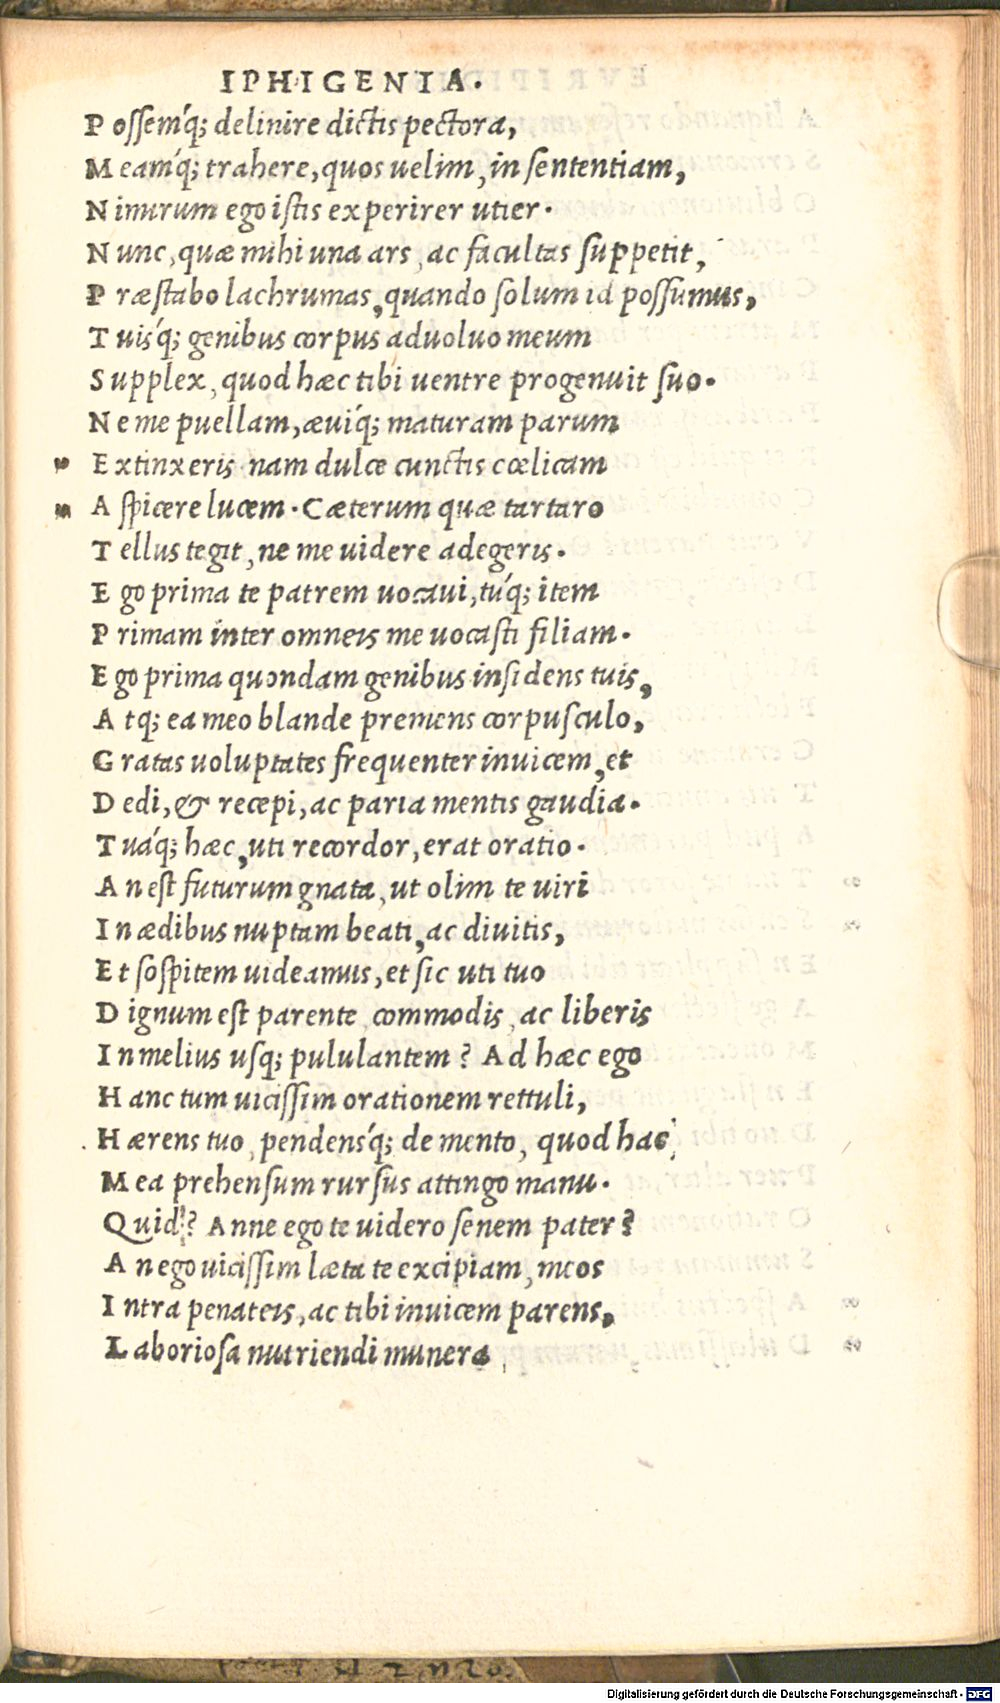 IPHIGENIA.
Possemq́; delinire dictis pectora,
Meamq́; trahere, quos uelim, in sententiam,
Nimirum ego istis experirer utier.
Nunc, quæ mihi una ars, ac facultas suppetit,
Præstabo lachrumas, quando solum id possumus,
Tuisq́; genibus corpus aduoluo meum
Supplex, quod hæc tibi uentre progenuit suo.
Ne me puellam, æuiq́; maturam parum
" Extinxeris. nam dulce cunctis cœlicam
" Aspicere lucem. Cæterum quæ tartaro
Tellus tegit, ne me uidere adegeris.
Ego prima te patrem uocaui, túq; item
Primam inter omneis me uocasti filiam.
Ego prima quondam genibus insidens tuis,
Atq; ea meo blande premens corpusculo,
Gratas uoluptates frequenter inuicem, et
Dedi, & recepi, ac paria mentis gaudia.
Tuáq; hæc, uti recordor, erat oratio.
An est futurum gnata, ut olim te uiri
In ædibus nuptam beati, ac diuitis,
Et sospitem uideamus, et sic uti tuo
Dignum est parente, commodis, ac liberis
In melius usq; pululantem? Ad hæc ego
Hanc tum uicissim orationem rettuli,
Hærens tuo, pendensq́; de mento, quod hac
Mea prehensum rursus attingo manu.
Quid? Anne ego te uidero senem pater?
An ego uicissim læta te excipiam, meos
Intra penateis, ac tibi inuicem parens,
Laboriosa nutriendi munera
Digitalisierung gefördert durch die Deutsche Forschungsgemeinschaft - DFG